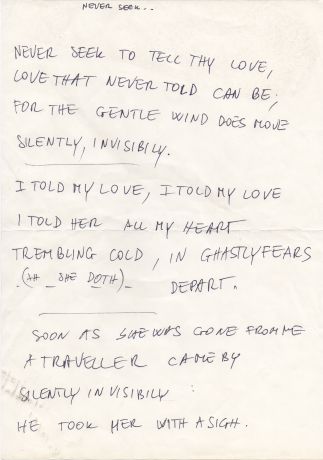 NEVER SEEK..
NEVER SEEK TO TELL THY LOVE,
LOVE THAT NEVER TOLD CAN BE;
FOR THE GENTLE WIND DOES MOVE
SILENTLY, INVISIBILY.
I TOLD MY LOVE, I TOLD MY LOVE
I TOLD HER ALL MY HEART
TREMBLING COLD, IN GHASTLY FEARS
(AH SHE DOTH) DEPART.
SOON AS SHE WAS GONE FROM ME
A TRAVELLER CAME BY
SILENTLY INVISIBILY :
HE TOOK HER WITH A SIGH.